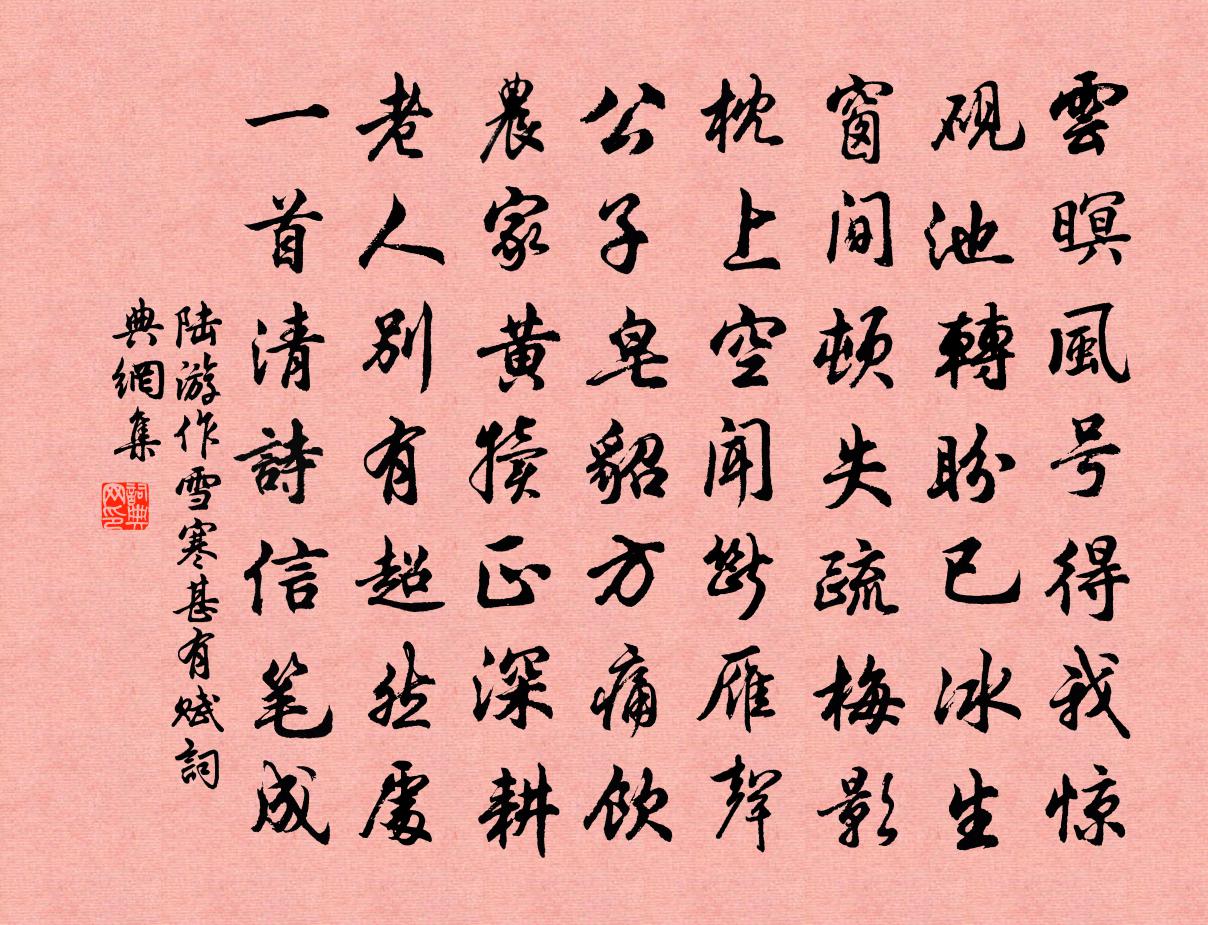 雲暝風号得我惊
硯池轉盼已冰生
窗间頓失疏梅影
枕上空闻斷雁聲
公子皂貂方痛飲
農家黄犢正深耕
老人别有超然處
一首清詩信笔成
陆游作雪寒甚有赋詞
典網集
詞典网印